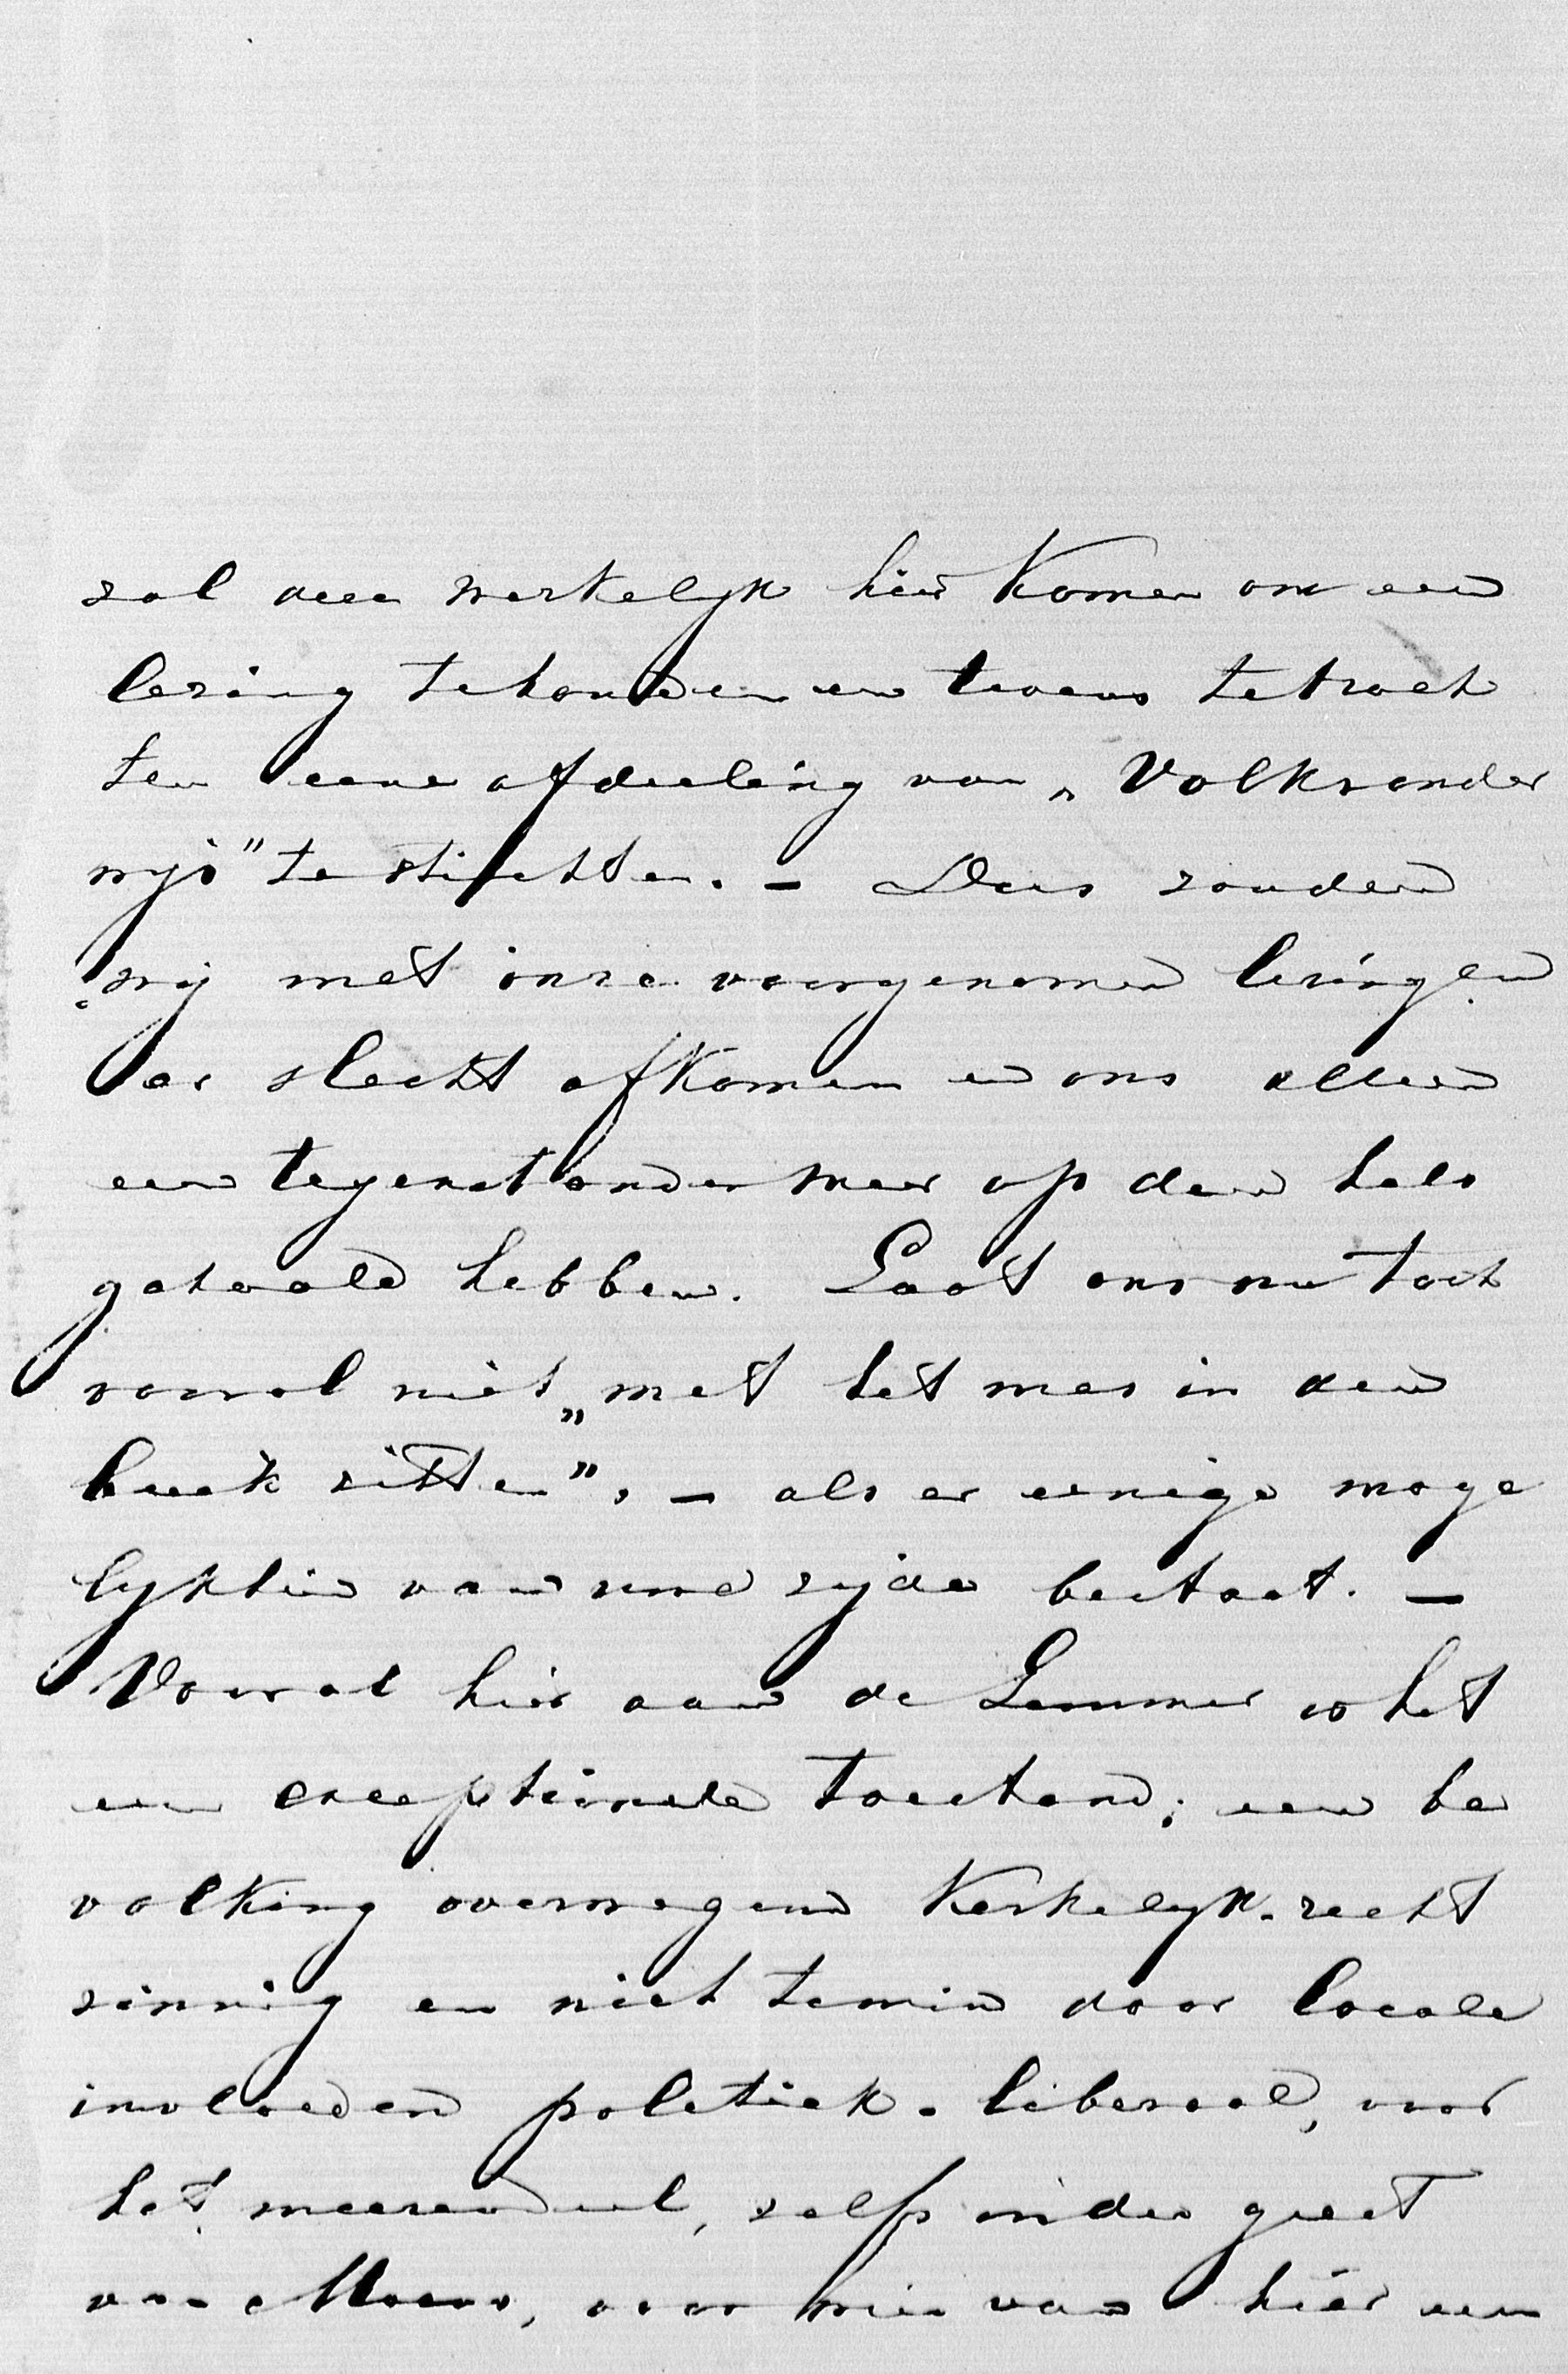 zal dan werkelijk hier komen om een
lezing te houden en tevens te trach
ten eene afdeeling van „Volksonder
wijs" te stichten. – Dus zouden
wij met onze voorgenomen lezingen
er slecht afkomen en ons alleen
een tegenstander meer op den hals
gehaald hebben. Laat ons nu toch
vooral niet „met het mes in den
buik zitten". – als er eenige moge
lijkheid van vrede zijde bestaat. –
Vooral hier aan de Lemmer is het
een exceptioneele toestand; een be
volking overwegend Kerkelijk-recht
zinnig en niettemin door locale
invloeden politiek-liberaal, voor
het meerendeel, zelfs in den geest
van Moens, voor wien van hier een